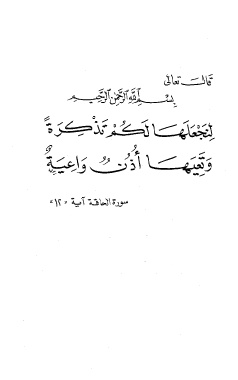 قال تعالى
بسم الله الرحمن الرحيم
لِنَجْعَلَهَا لَكُمْ تَذْكِرَةً
وَتَعِيَهَا أُذُنٌ وَاعِيَةٌ
سورة الحاقة آية «١٢»